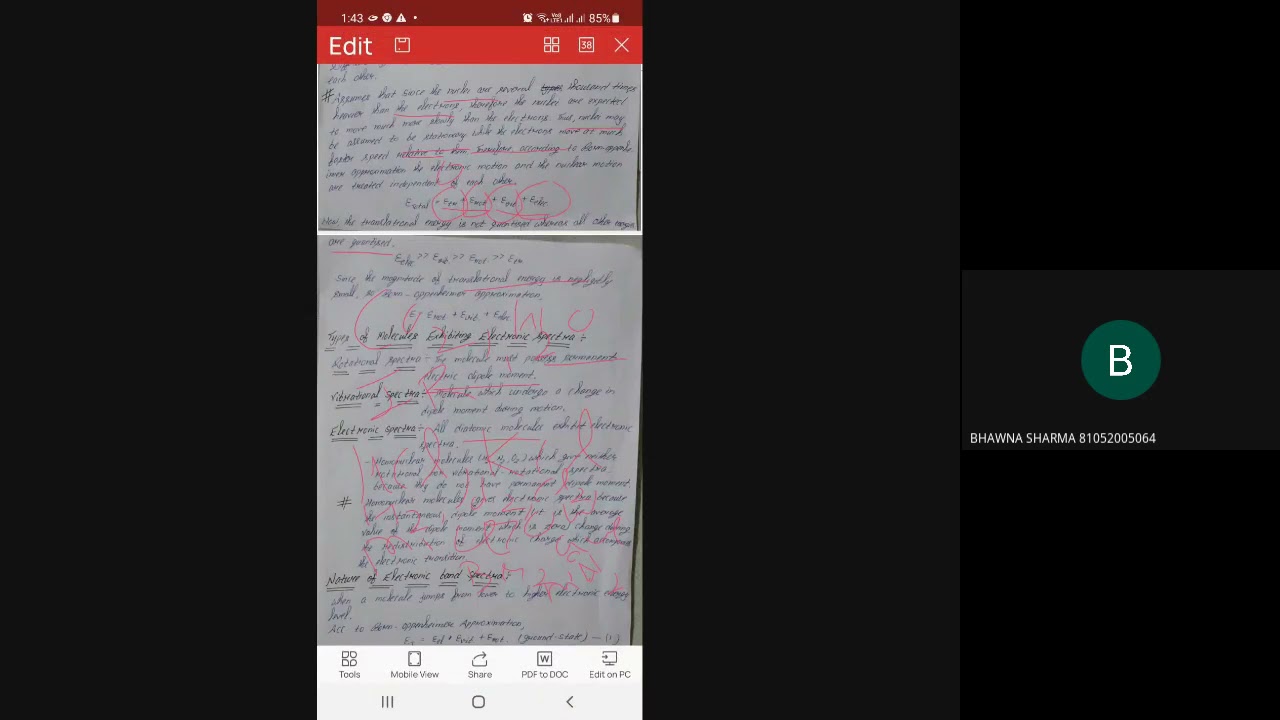 1:43 85%
Edit 38
each other.
# Assumes that since the nuclei are several thousand times
heavier than the electrons, therefore the nuclei are expected
to move much more slowly than the electrons. Thus, nuclei may
be assumed to be stationary while the electrons move at much
faster speed relative to them. Therefore, according to Born-oppenhe
imer approximation the electronic motion and the nuclear motion
are treated independent of each other.
Etotal = Etr + Erot + Evib + Eelec
Now, the translational energy is not quantised whereas all other energies
are quantised.
Eelec >> Evib >> Erot >> Etr
Since the magnitude of translational energy is negligibly
small, so Born-oppenheimer approximation,
E = Erot + Evib + Eelec
Types of Molecules Exhibiting Electronic Spectra :-
Rotational Spectra :- The molecule must possess permanent
electric dipole moment.
Vibrational Spectra :- Molecule which undergo a change in
dipole moment during motion.
Electronic Spectra :- All diatomic molecules exhibit electronic
spectra.
- Homonuclear molecules which give neither
rotational nor vibrational-rotational spectra
because they do not have permanent dipole moment
# Homonuclear molecules gives electronic spectra because
the instantaneous dipole moment (it is the average
value of the dipole moment which is zero) change during
the redistribution of electronic charge which accompanies
the electronic transition
Nature of Electronic band Spectra :-
When a molecule jumps from lower to higher electronic energy
level.
Acc to Born-oppenheimer Approximation,
E1 = Eel + Evib + Erot (ground-state) — (1)
Tools Mobile View Share PDF to DOC Edit on PC
B
BHAWNA SHARMA 81052005064